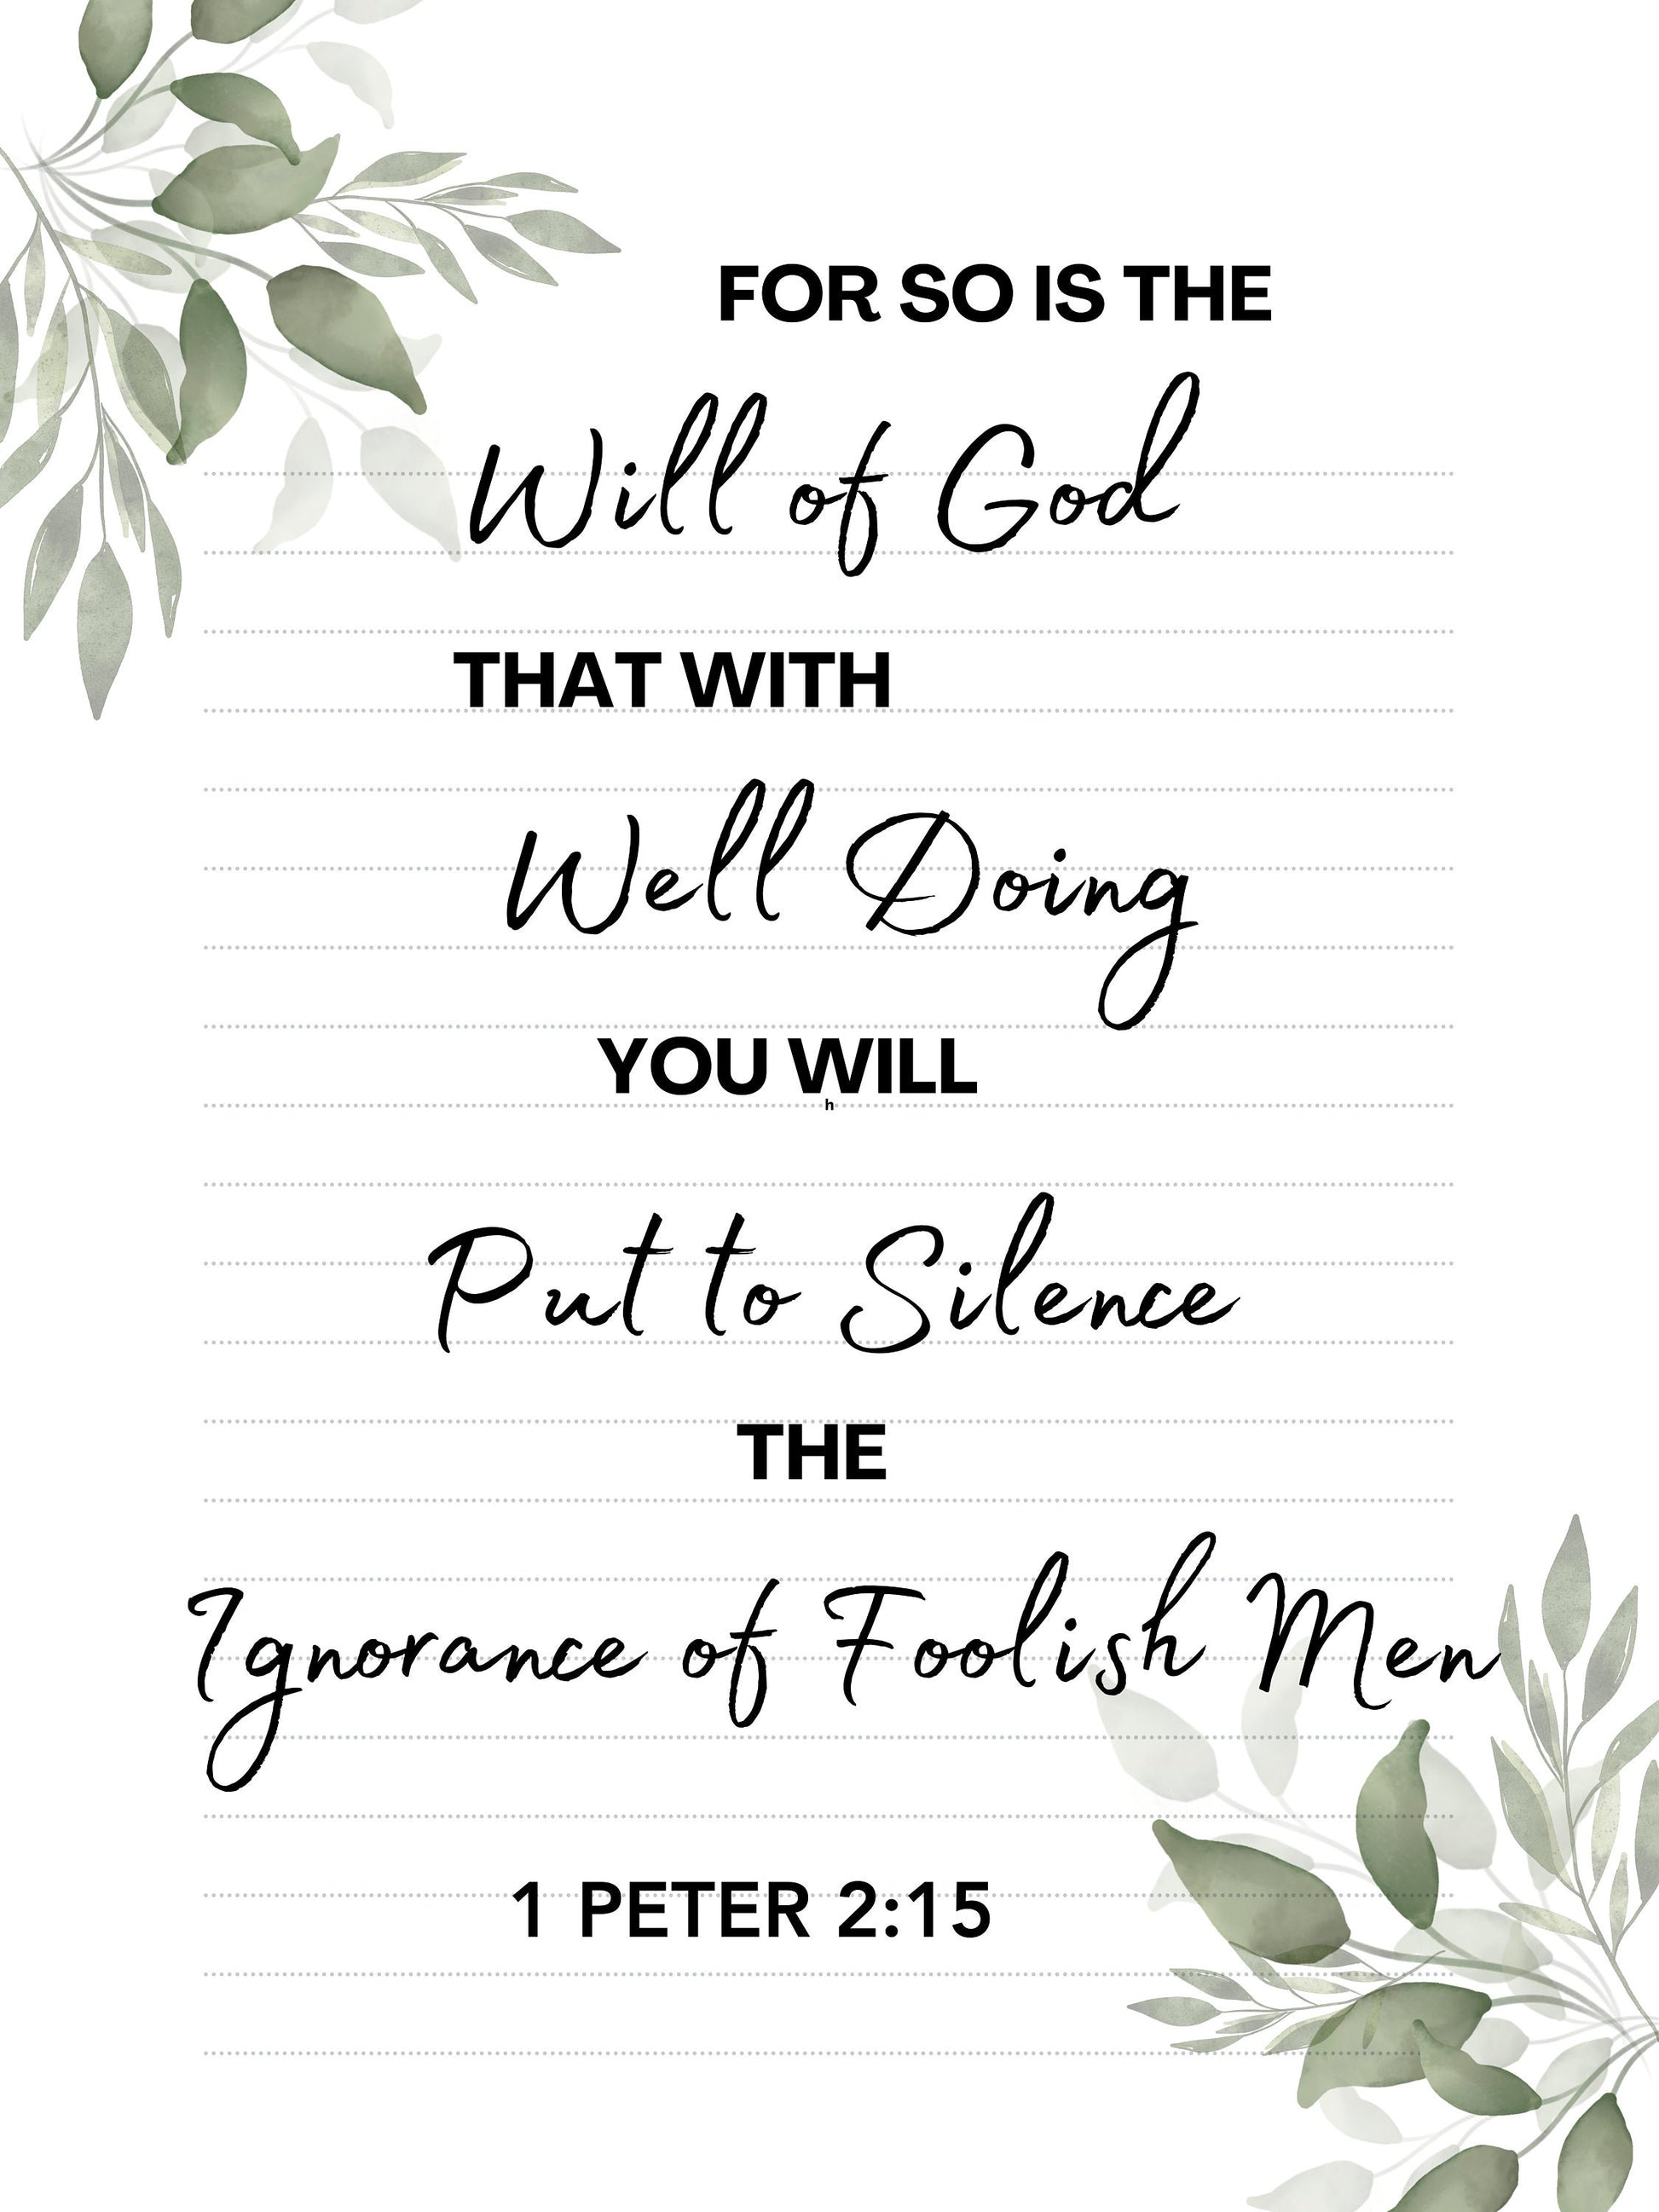 FOR SO IS THE
Will of God
THAT WITH
Well Doing
YOU WILL
h
Put to Silence
THE
Ignorance of Foolish Men
1 PETER 2:15